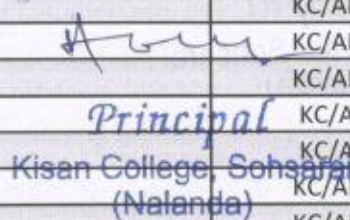 KC/A
KC/A
KC/A
Principal KC/A
KC/A
Kisan College, Sohsarai
(Nalanda) KC/A
KC/A